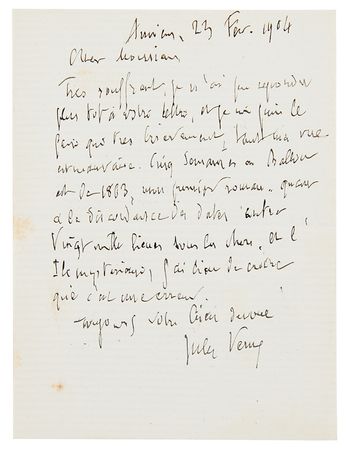 Amiens, 23 Fév. 1904
Cher Monsieur,
Très souffrant, je n'ai pu répondre
plus tôt à votre lettre, et je ne puis le
faire que très brièvement, tant ma vue
est mauvaise. Cinq Semaines en Ballon
est de 1863, mon premier roman. quant
à la discordance des dates entre
Vingt mille lieues sous les mers, et l'
Ile mystérieuse, j'ai lieu de croire
que c'est une erreur.
toujours votre bien dévoué
Jules Verne